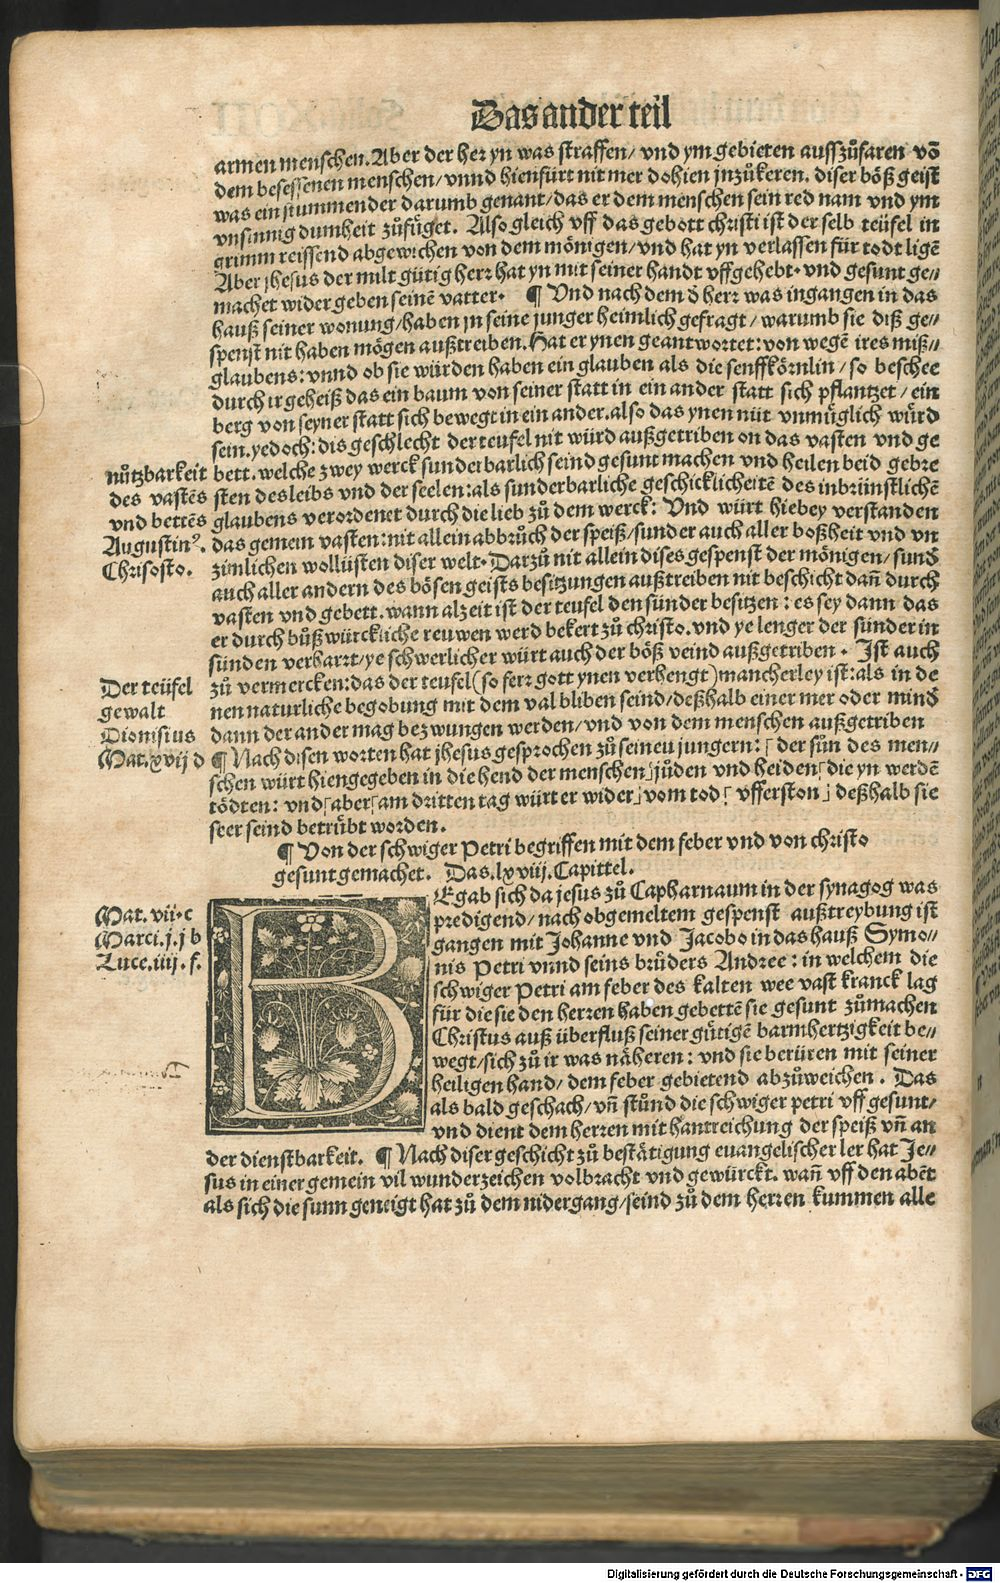 Das ander teil
armen menschen. Aber der her yn was straffen/ vnd ym gebieten ausszůfaren võ
dem besessenen menschen/ vnnd hienfürt nit mer dohien ynzůkeren. diser bôß geist
was ein stummender darumb genant/ das er dem menschen sein red nam vnd ym
vnsinnig dumheit zůfüget. Also gleich vff das gebott christi ist der selb teüfel in
grimm reissend abgewichen von dem mônigen/ vnd hat yn verlassen für todt ligẽ
Aber jhesus der milt gütig herr hat yn mit seiner handt vffgehebt. vnd gesunt ge⸗
machet wider geben seinẽ vatter. ¶ Vnd nach dem d̃ herr was ingangen in das
hauß seiner wonung/ haben jn seine junger heimlich gefragt/ warumb sie diß ge⸗
spenst nit haben môgen außtreiben. Hat er ynen geantwortet: von wegẽ ires miß⸗
glaubens: vnnd ob sie würden haben ein glauben als die senffkôrnlin/ so beschee
durch ir geheiß das ein baum von seiner statt in ein ander statt sich pflantzet/ ein
berg von seyner statt sich bewegt in ein ander. also das ynen nüt vnmüglich würd
sein. yedoch: dis geschlecht der teufel nit würd außgetriben on das vasten vnd ge
bett. welche zwey werck sunderbarlich seind gesunt machen vnd heilen beid gebre
sten des leibs vnd der seelen: als sunderbarliche geschicklicheitẽ des inbrünstlichẽ
glaubens verordenet durch die lieb zů dem werck: Vnd würt hiebey verstanden
das gemein vasten: nit allein abbrůch der speiß/ sunder auch aller boßheit vnd vn
zimlichen wollüsten diser welt. Darzů nit allein dises gespenst der mônigen/ sund̃
auch aller andern des bôsen geists besitzungen außtreiben nit beschicht dañ durch
vasten vnd gebett. wann alzeit ist der teufel den sünder besitzen: es sey dann das
er durch bůßwürckliche reuwen werd bekert zů christo. vnd ye lenger der sünder in
sunden verharrt/ ye schwerlicher würt auch der bôß veind außgetriben. Ist auch
zů vermercken: das der teufel (so ferr gott ynen verhengt) mancherley ist: als in de
nen naturliche begobung mit dem val bliben seind/ deßhalb einer mer oder mind̃
dann der ander mag bezwungen werden/ vnd von dem menschen außgetriben
¶ Nach disen worten hat jhesus gesprochen zů seineu jungern: ⌈ der sůn des men⸗
schen würt hiengegeben in die hend der menschen⌋ jůden vnd heiden⌈ die yn werdẽ
tôdten: vnd⌈ aber⌈ am dritten tag würt er wider⌋ vom tod⌈ vfferston⌋ deßhalb sie
seer seind betrůbt worden.
nůtzbarkeit
des vastẽs
vnd bettẽs
Augustinꝰ.
Chrisosto.
Der teüfel
gewalt
Dionisius
Mat. xvij d
¶ Von der schwiger Petri begriffen mit dem feber vnd von christo
gesunt gemachet. Das. lxviij. Capittel.
Mat. vii. c
Marci. j. j b
Luce. iiij. f.
BEgab sich da jesus zů Capharnaum in der synagog was
predigend/ nach obgemeltem gespenst außtreybung ist
gangen mit Johanne vnd Jacobo in das hauß Symo⸗
nis Petri vnnd seins brůders Andree: in welchem die
schwiger Petri am feber des kalten wee vast kranck lag
für die sie den herren haben gebettẽ sie gesunt zůmachen
Christus auß überfluß seiner gütigẽ barmhertzigkeit be⸗
wegt/ sich zů ir was näheren: vnd sie berüren mit seiner
heiligen hand/ dem feber gebietend abzůweichen. Das
als bald geschach/ vñ stůnd die schwiger petri vff gesunt/
vnd dient dem herren mit hantreichung der speiß vñ an
der dienstbarkeit. ¶ Nach diser geschicht zů bestätigung euangelischer ler hat Je⸗
sus in einer gemein vil wunderzeichen volbracht vnd gewürckt. wañ vff den abẽt
als sich die sunn geneigt hat zů dem nidergang/ seind zů dem herren kummen alle
Digitalisierung gefördert durch die Deutsche Forschungsgemeinschaft - DFG